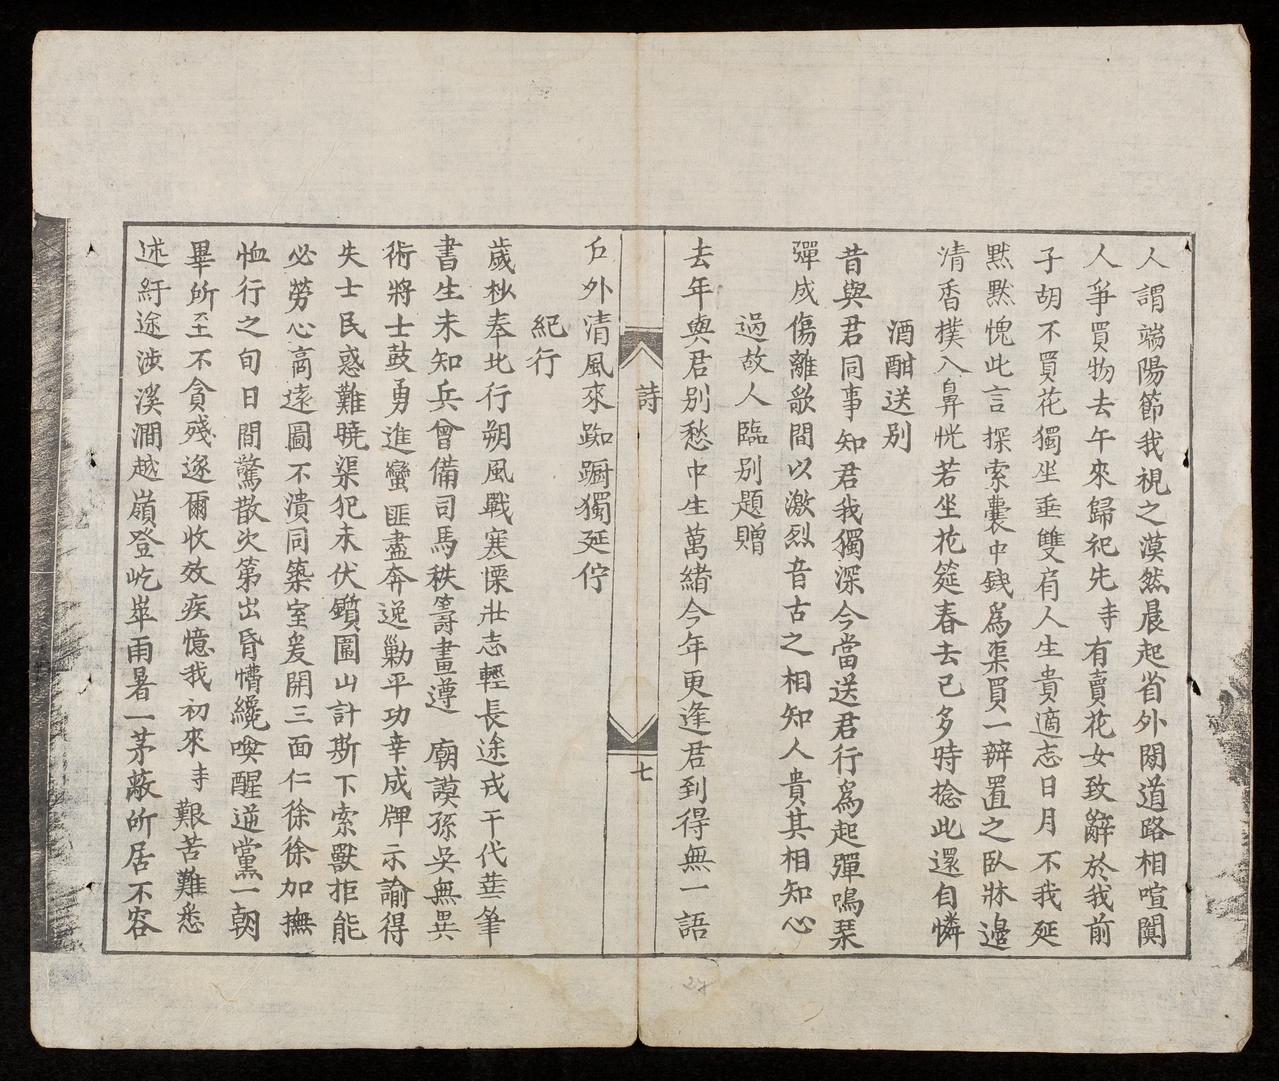 人謂端陽節我視之漠然晨起省外閟道路相喧闐
人爭買物去午來歸祀先𡬶有賣花女致辭於我前
子胡不買花獨坐垂雙肩人生貴適志日月不我延
默默愧此言探索囊中錢爲渠買一辨置之臥牀邊
清香撲入鼻恍若坐花筵春去已多時捻此還自憐
酒酣送别
昔與君同事知君我獨深今當送君行爲起彈鳴琹
彈成傷離歌間以激烈音古之相知人貴其相知心
過故人臨别題贈
去年與君别愁中生萬緒今年更逢君到得無一語
詩
七
戶外清風來踟蹰獨延佇
紀行
歲杪奉北行朔風戰寒慄壯志輕長途戎干代莊筆
書生未知兵曾備司馬秩籌畫遵 廟謨孫吳無異
術將士鼓勇進蠻匪盡奔逸勦平功幸成牌示諭得
失士民惑難曉渠犯未伏鑕圍山計斯下索獸拒能
必勞心高遠圖不潰同築室爰開三面仁徐徐加撫
恤行之旬日間驚散次第出昏懵纔喚醒逆黨一朝
畢所至不貪殘遂爾收效疾憶我初來𡬶艱苦難悉
述紆途涉溪澗越嶺登屹崒雨暑一茅蔽所居不容
27